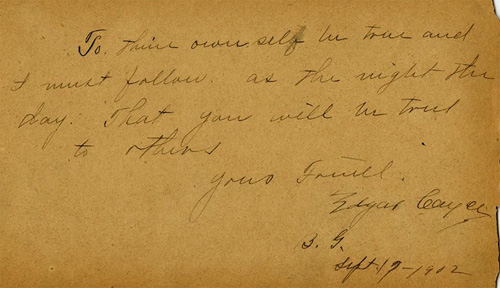 To. thine own self be true and
it must follow. as the night the
day. That you will be true
to others
yours Truell.
Edgar Cayce
B. G.
Sept. 17-1902